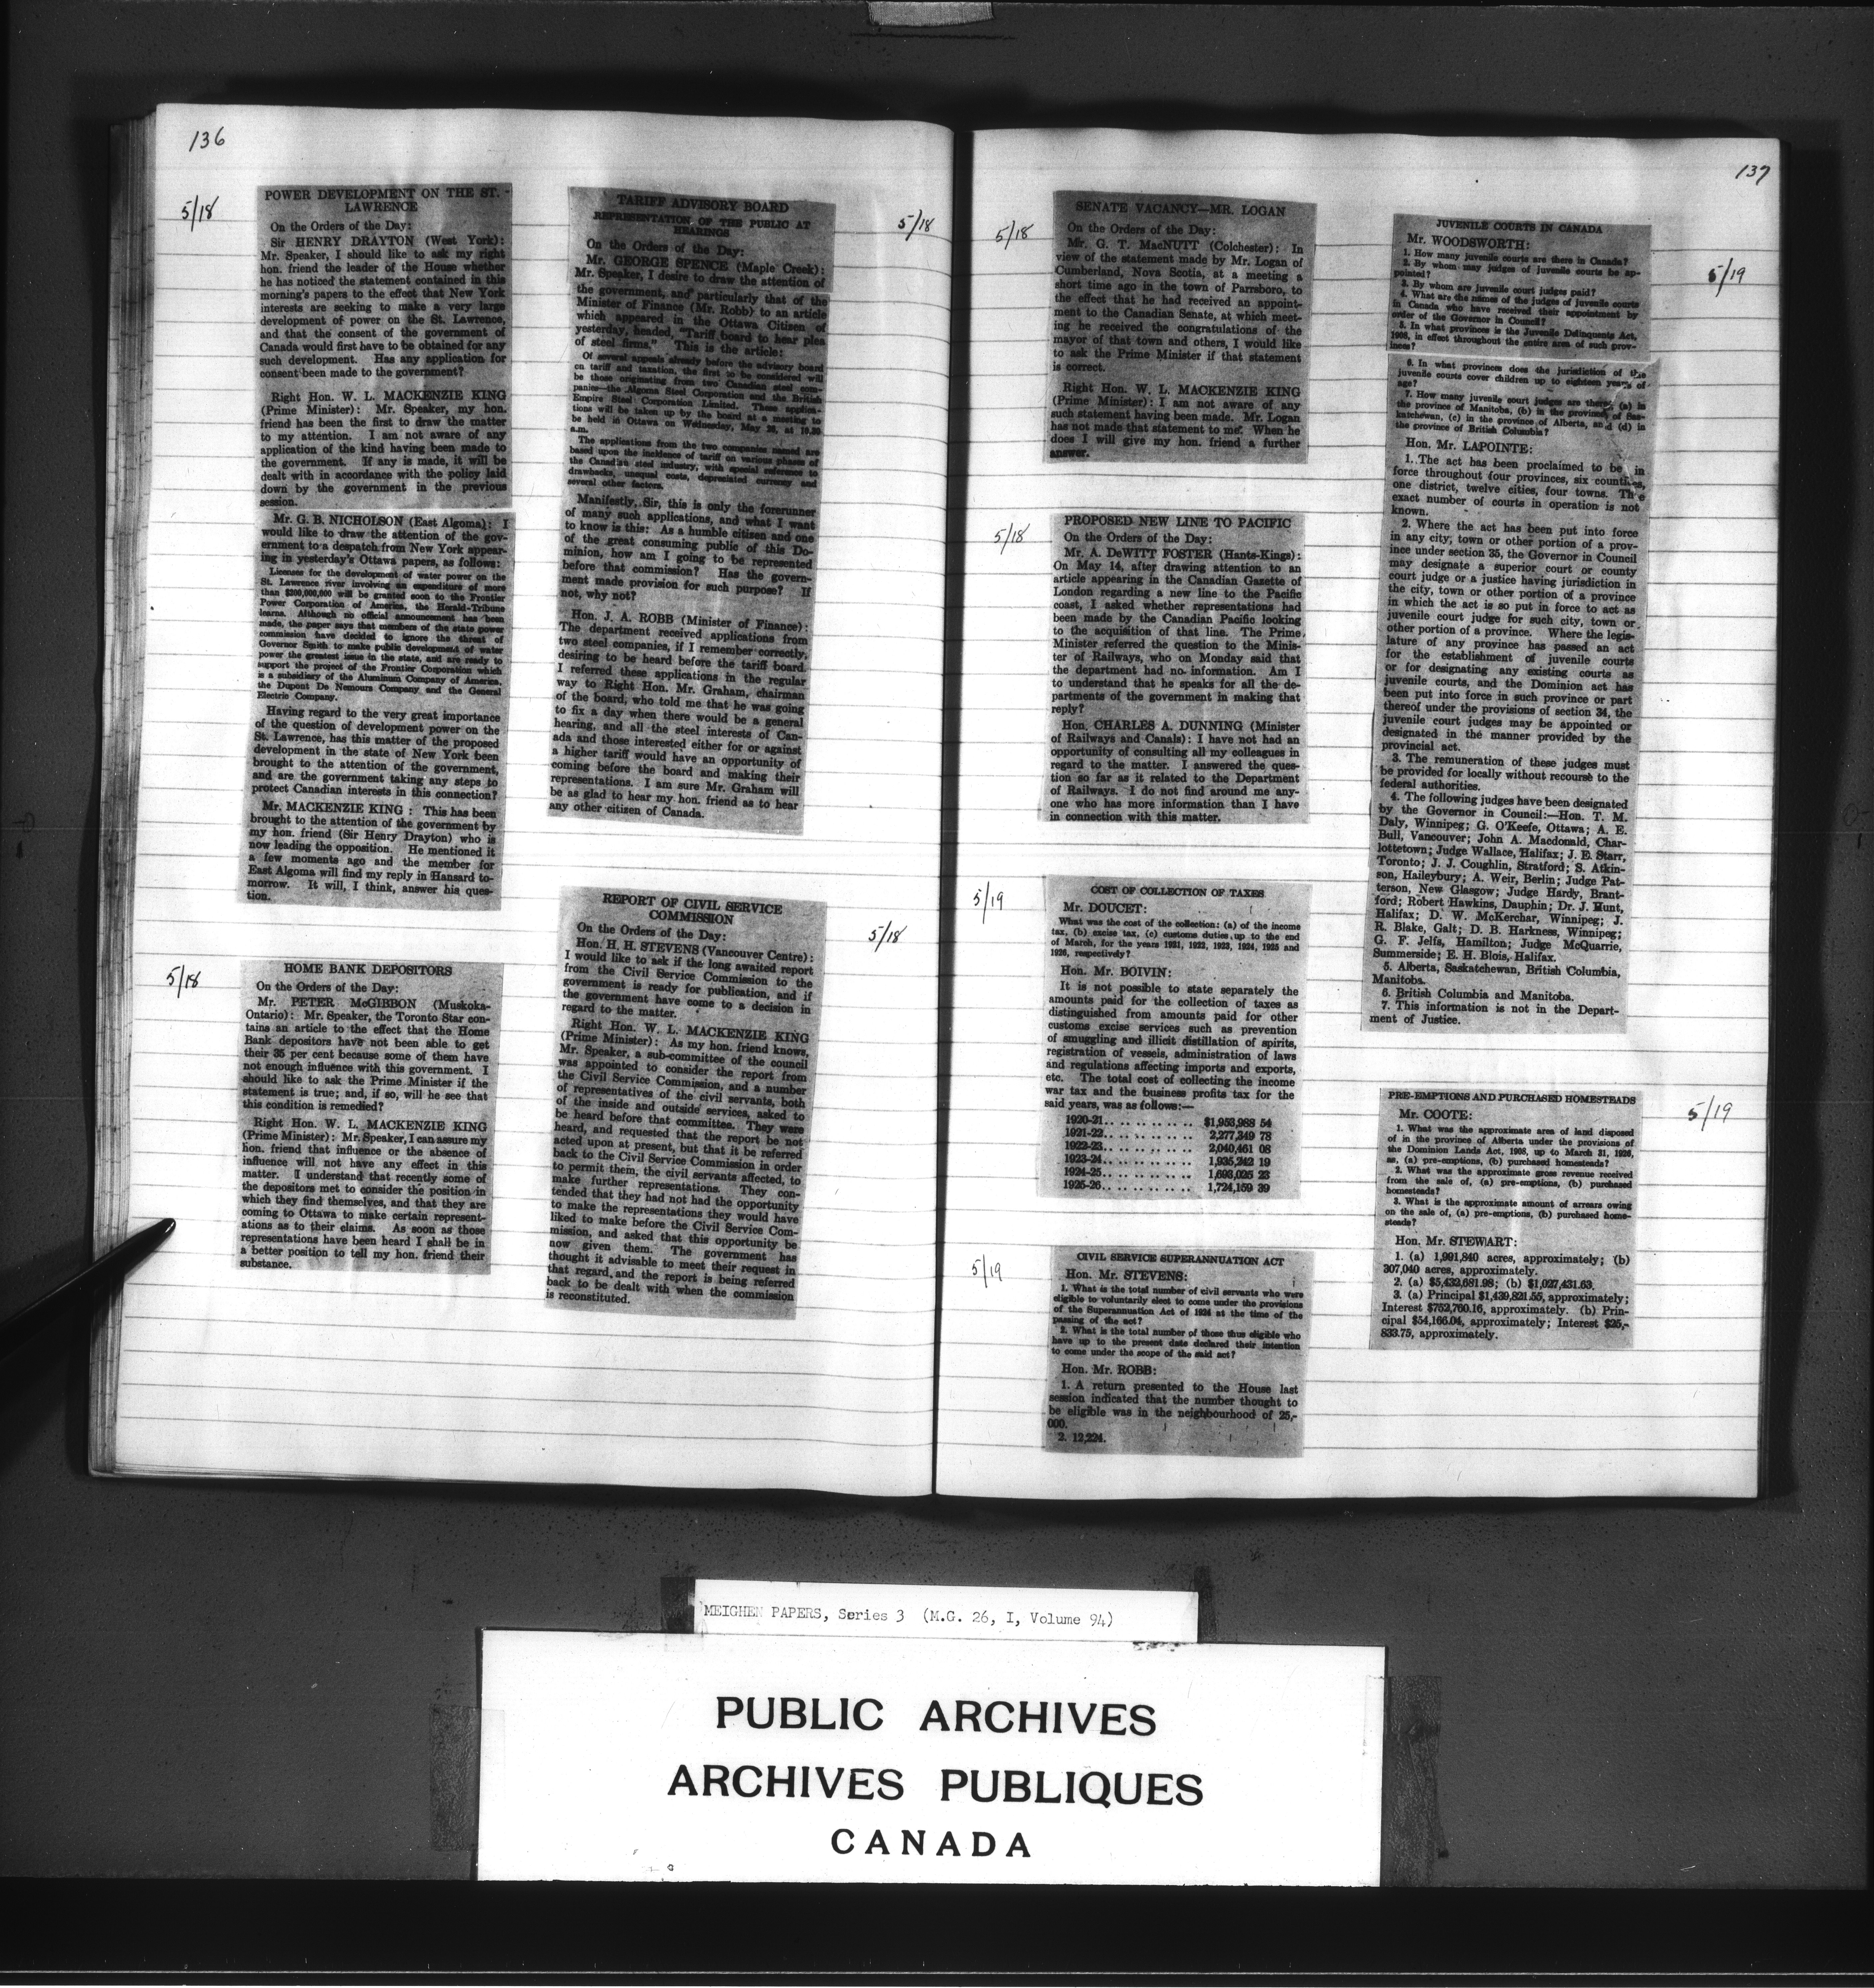 136
5/18
POWER DEVELOPMENT ON THE ST.
LAWRENCE
On the Orders of the Day:
Sir HENRY DRAYTON (West York):
Mr. Speaker, I should like to ask my right
hon. friend the leader of the House whether
he has noticed the statement contained in this
morning's papers to the effect that New York
interests are seeking to make a very large
development of power on the St. Lawrence,
and that the consent of the government of
Canada would first have to be obtained for any
such development. Has any application for
consent been made to the government?
Right Hon. W. L. MACKENZIE KING
(Prime Minister): Mr. Speaker, my hon.
friend has been the first to draw the matter
to my attention. I am not aware of any
application of the kind having been made to
the government. If any is made, it will be
dealt with in accordance with the policy laid
down by the government in the previous
session.
Mr. G. B. NICHOLSON (East Algoma): I
would like to draw the attention of the gov-
ernment to a despatch from New York appear-
ing in yesterday's Ottawa papers, as follows:
Licenses for the development of water power on the
St. Lawrence river involving an expenditure of more
than $200,000,000 will be granted soon to the Frontier
Power Corporation of America, the Herald-Tribune
learns. Although no official announcement has been
made, the paper says that members of the state power
commission have decided to ignore the threat of
Governor Smith to make public development of water
power the greatest issue in the state, and are ready to
support the project of the Frontier Corporation which
is a subsidiary of the Aluminum Company of America,
the Dupont De Nemours Company and the General
Electric Company.
Having regard to the very great importance
of the question of development power on the
St. Lawrence, has this matter of the proposed
development in the state of New York been
brought to the attention of the government,
and are the government taking any steps to
protect Canadian interests in this connection?
Mr. MACKENZIE KING: This has been
brought to the attention of the government by
my hon. friend (Sir Henry Drayton) who is
now leading the opposition. He mentioned it
a few moments ago and the member for
East Algoma will find my reply in Hansard to-
morrow. It will, I think, answer his ques-
tion.
5/18
HOME BANK DEPOSITORS
On the Orders of the Day:
Mr. PETER McGIBBON (Muskoka-
Ontario): Mr. Speaker, the Toronto Star con-
tains an article to the effect that the Home
Bank depositors have not been able to get
their 35 per cent because some of them have
not enough influence with this government. I
should like to ask the Prime Minister if the
statement is true; and, if so, will he see that
this condition is remedied?
Right Hon. W. L. MACKENZIE KING
(Prime Minister): Mr. Speaker, I can assure my
hon. friend that influence or the absence of
influence will not have any effect in this
matter. I understand that recently some of
the depositors met to consider the position in
which they find themselves, and that they are
coming to Ottawa to make certain represent-
ations as to their claims. As soon as those
representations have been heard I shall be in
a better position to tell my hon. friend their
substance.
5/18
TARIFF ADVISORY BOARD
REPRESENTATION OF THE PUBLIC AT
HEARINGS
On the Orders of the Day:
Mr. GEORGE SPENCE (Maple Creek):
Mr. Speaker, I desire to draw the attention of
the government, and particularly that of the
Minister of Finance (Mr. Robb) to an article
which appeared in the Ottawa Citizen of
yesterday, headed, "Tariff board to hear plea
of steel firms." This is the article:
Of several appeals already before the advisory board
on tariff and taxation, the first to be considered will
be those originating from two Canadian steel com-
panies—the Algoma Steel Corporation and the British
Empire Steel Corporation Limited. These applica-
tions will be taken up by the board at a meeting to
be held in Ottawa on Wednesday, May 26, at 10.30
a.m.
The applications from the two companies named are
based upon the incidence of tariff on various phases of
the Canadian steel industry, with special reference to
drawbacks, unequal costs, depreciated currency and
several other factors.
Manifestly, Sir, this is only the forerunner
of many such applications, and what I want
to know is this: As a humble citizen and one
of the great consuming public of this Do-
minion, how am I going to be represented
before that commission? Has the govern-
ment made provision for such purpose? If
not, why not?
Hon. J. A. ROBB (Minister of Finance):
The department received applications from
two steel companies, if I remember correctly,
desiring to be heard before the tariff board.
I referred these applications in the regular
way to Right Hon. Mr. Graham, chairman
of the board, who told me that he was going
to fix a day when there would be a general
hearing, and all the steel interests of Can-
ada and those interested either for or against
a higher tariff would have an opportunity of
coming before the board and making their
representations. I am sure Mr. Graham will
be as glad to hear my hon. friend as to hear
any other citizen of Canada.
5/18
REPORT OF CIVIL SERVICE
COMMISSION
On the Orders of the Day:
Hon. H. H. STEVENS (Vancouver Centre):
I would like to ask if the long awaited report
from the Civil Service Commission to the
government is ready for publication, and if
the government have come to a decision in
regard to the matter.
Right Hon. W. L. MACKENZIE KING
(Prime Minister): As my hon. friend knows,
Mr. Speaker, a sub-committee of the council
was appointed to consider the report from
the Civil Service Commission, and a number
of representatives of the civil servants, both
of the inside and outside services, asked to
be heard before that committee. They were
heard, and requested that the report be not
acted upon at present, but that it be referred
back to the Civil Service Commission in order
to permit them, the civil servants affected, to
make further representations. They con-
tended that they had not had the opportunity
to make the representations they would have
liked to make before the Civil Service Com-
mission, and asked that this opportunity be
now given them. The government has
thought it advisable to meet their request in
that regard, and the report is being referred
back to be dealt with when the commission
is reconstituted.
137
5/18
SENATE VACANCY—MR. LOGAN
On the Orders of the Day:
Mr. G. T. MacNUTT (Colchester): In
view of the statement made by Mr. Logan of
Cumberland, Nova Scotia, at a meeting a
short time ago in the town of Parrsboro, to
the effect that he had received an appoint-
ment to the Canadian Senate, at which meet-
ing he received the congratulations of the
mayor of that town and others, I would like
to ask the Prime Minister if that statement
is correct.
Right Hon. W. L. MACKENZIE KING
(Prime Minister): I am not aware of any
such statement having been made. Mr. Logan
has not made that statement to me. When he
does I will give my hon. friend a further
answer.
5/18
PROPOSED NEW LINE TO PACIFIC
On the Orders of the Day:
Mr. A. DeWITT FOSTER (Hants-Kings):
On May 14, after drawing attention to an
article appearing in the Canadian Gazette of
London regarding a new line to the Pacific
coast, I asked whether representations had
been made by the Canadian Pacific looking
to the acquisition of that line. The Prime
Minister referred the question to the Minis-
ter of Railways, who on Monday said that
the department had no information. Am I
to understand that he speaks for all the de-
partments of the government in making that
reply?
Hon. CHARLES A. DUNNING (Minister
of Railways and Canals): I have not had an
opportunity of consulting all my colleagues in
regard to the matter. I answered the ques-
tion so far as it related to the Department
of Railways. I do not find around me any-
one who has more information than I have
in connection with this matter.
5/19
COST OF COLLECTION OF TAXES
Mr. DOUCET:
What was the cost of the collection: (a) of the income
tax, (b) excise tax, (c) customs duties, up to the end
of March, for the years 1921, 1922, 1923, 1924, 1925 and
1926, respectively?
Hon. Mr. BOIVIN:
It is not possible to state separately the
amounts paid for the collection of taxes as
distinguished from amounts paid for other
customs excise services such as prevention
of smuggling and illicit distillation of spirits,
registration of vessels, administration of laws
and regulations affecting imports and exports,
etc. The total cost of collecting the income
war tax and the business profits tax for the
said years, was as follows:—
1920-21.. .. .. .. .. .. .. $1,953,988 54
1921-22.. .. .. .. .. .. .. 2,277,349 78
1922-23.. .. .. .. .. .. .. 2,040,461 08
1923-24.. .. .. .. .. .. .. 1,935,242 19
1924-25.. .. .. .. .. .. .. 1,693,025 23
1925-26.. .. .. .. .. .. .. 1,724,159 39
5/19
CIVIL SERVICE SUPERANNUATION ACT
Hon. Mr. STEVENS:
1. What is the total number of civil servants who were
eligible to voluntarily elect to come under the provisions
of the Superannuation Act of 1924 at the time of the
passing of the act?
2. What is the total number of those thus eligible who
have up to the present date declared their intention
to come under the scope of the said act?
Hon. Mr. ROBB:
1. A return presented to the House last
session indicated that the number thought to
be eligible was in the neighbourhood of 25,-
000.
2. 12,224.
5/19
JUVENILE COURTS IN CANADA
Mr. WOODSWORTH:
1. How many juvenile courts are there in Canada?
2. By whom may judges of juvenile courts be ap-
pointed?
3. By whom are juvenile court judges paid?
4. What are the names of the judges of juvenile courts
in Canada who have received their appointment by
order of the Governor in Council?
5. In what provinces is the Juvenile Delinquents Act,
1908, in effect throughout the entire area of such prov-
inces?
6. In what provinces does the jurisdiction of the
juvenile courts cover children up to eighteen years of
age?
7. How many juvenile court judges are there, (a) in
the province of Manitoba, (b) in the province of Sas-
katchewan, (c) in the province of Alberta, and (d) in
the province of British Columbia?
Hon. Mr. LAPOINTE:
1. The act has been proclaimed to be in
force throughout four provinces, six counties,
one district, twelve cities, four towns. The
exact number of courts in operation is not
known.
2. Where the act has been put into force
in any city, town or other portion of a prov-
ince under section 35, the Governor in Council
may designate a superior court or county
court judge or a justice having jurisdiction in
the city, town or other portion of a province
in which the act is so put in force to act as
juvenile court judge for such city, town or
other portion of a province. Where the legis-
lature of any province has passed an act
for the establishment of juvenile courts
or for designating any existing courts as
juvenile courts, and the Dominion act has
been put into force in such province or part
thereof under the provisions of section 34, the
juvenile court judges may be appointed or
designated in the manner provided by the
provincial act.
3. The remuneration of these judges must
be provided for locally without recourse to the
federal authorities.
4. The following judges have been designated
by the Governor in Council:—Hon. T. M.
Daly, Winnipeg; G. O'Keefe, Ottawa; A. E.
Bull, Vancouver; John A. Macdonald, Char-
lottetown; Judge Wallace, Halifax; J. E. Starr,
Toronto; J. J. Coughlin, Stratford; S. Atkin-
son, Haileybury; A. Weir, Berlin; Judge Pat-
terson, New Glasgow; Judge Hardy, Brant-
ford; Robert Hawkins, Dauphin; Dr. J. Hunt,
Halifax; D. W. McKerchar, Winnipeg; J.
R. Blake, Galt; D. B. Harkness, Winnipeg;
G. F. Jelfs, Hamilton; Judge McQuarrie,
Summerside; E. H. Blois, Halifax.
5. Alberta, Saskatchewan, British Columbia,
Manitoba.
6. British Columbia and Manitoba.
7. This information is not in the Depart-
ment of Justice.
5/19
PRE-EMPTIONS AND PURCHASED HOMESTEADS
Mr. COOTE:
1. What was the approximate area of land disposed
of in the province of Alberta under the provisions of
the Dominion Lands Act, 1908, up to March 31, 1926,
as, (a) pre-emptions, (b) purchased homesteads?
2. What was the approximate gross revenue received
from the sale of, (a) pre-emptions, (b) purchased
homesteads?
3. What is the approximate amount of arrears owing
on the sale of, (a) pre-emptions, (b) purchased home-
steads?
Hon. Mr. STEWART:
1. (a) 1,991,840 acres, approximately; (b)
307,040 acres, approximately.
2. (a) $5,432,681.98; (b) $1,027,431.63.
3. (a) Principal $1,439,821.55, approximately;
Interest $752,760.16, approximately. (b) Prin-
cipal $54,166.04, approximately; Interest $25,-
833.75, approximately.
5/19
MEIGHEN PAPERS, Series 3 (M.G. 26, I, Volume 94)
PUBLIC ARCHIVES
ARCHIVES PUBLIQUES
CANADA